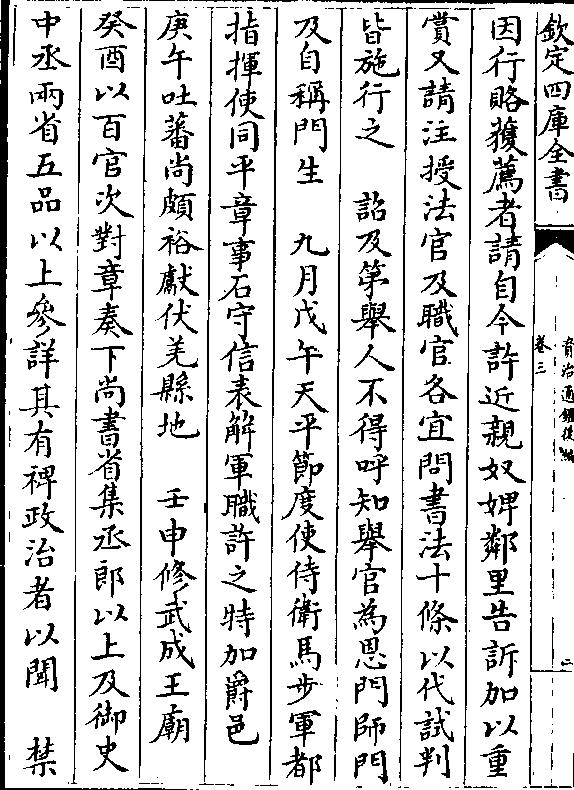 欽定四庫全書
資治通鑑後編
卷三
二
因行賂獲薦者請自今許近親奴婢鄰里告訴加以重
賞又請注授法官及職官各宜問書法十條以代試判
皆施行之　詔及第舉人不得呼知舉官為恩門師門
及自稱門生　九月戊午天平節度使侍衛馬步軍都
指揮使同平章事石守信表解軍職許之特加爵邑
庚午吐蕃尚頗裕獻伏羌縣地　壬申修武成王廟
癸酉以百官次對章奏下尚書省集丞郎以上及御史
中丞兩省五品以上參詳其有裨政治者以聞　禁